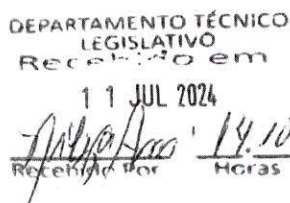 DEPARTAMENTO TÉCNICO
LEGISLATIVO
Recebido em
11 JUL 2024
14.10
Recebido Por Horas